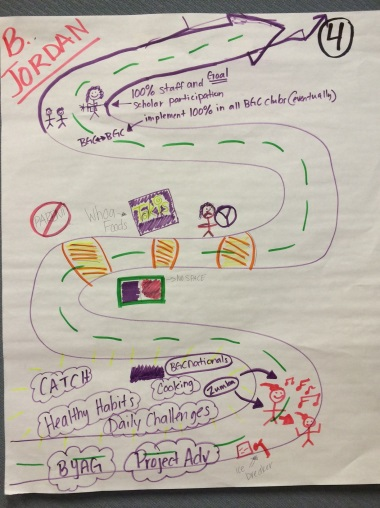 B.
JORDAN
4
100% staff and Goal
scholar participation
implement 100% in all BGC clubs (eventually)
BGC BGC
Whoa
Foods
NO SPACE
CATCH
BGC Nationals
Cooking
Zumba
Healthy Habits
Daily Challenges
BYAG
Project Adv
Ice
breaker